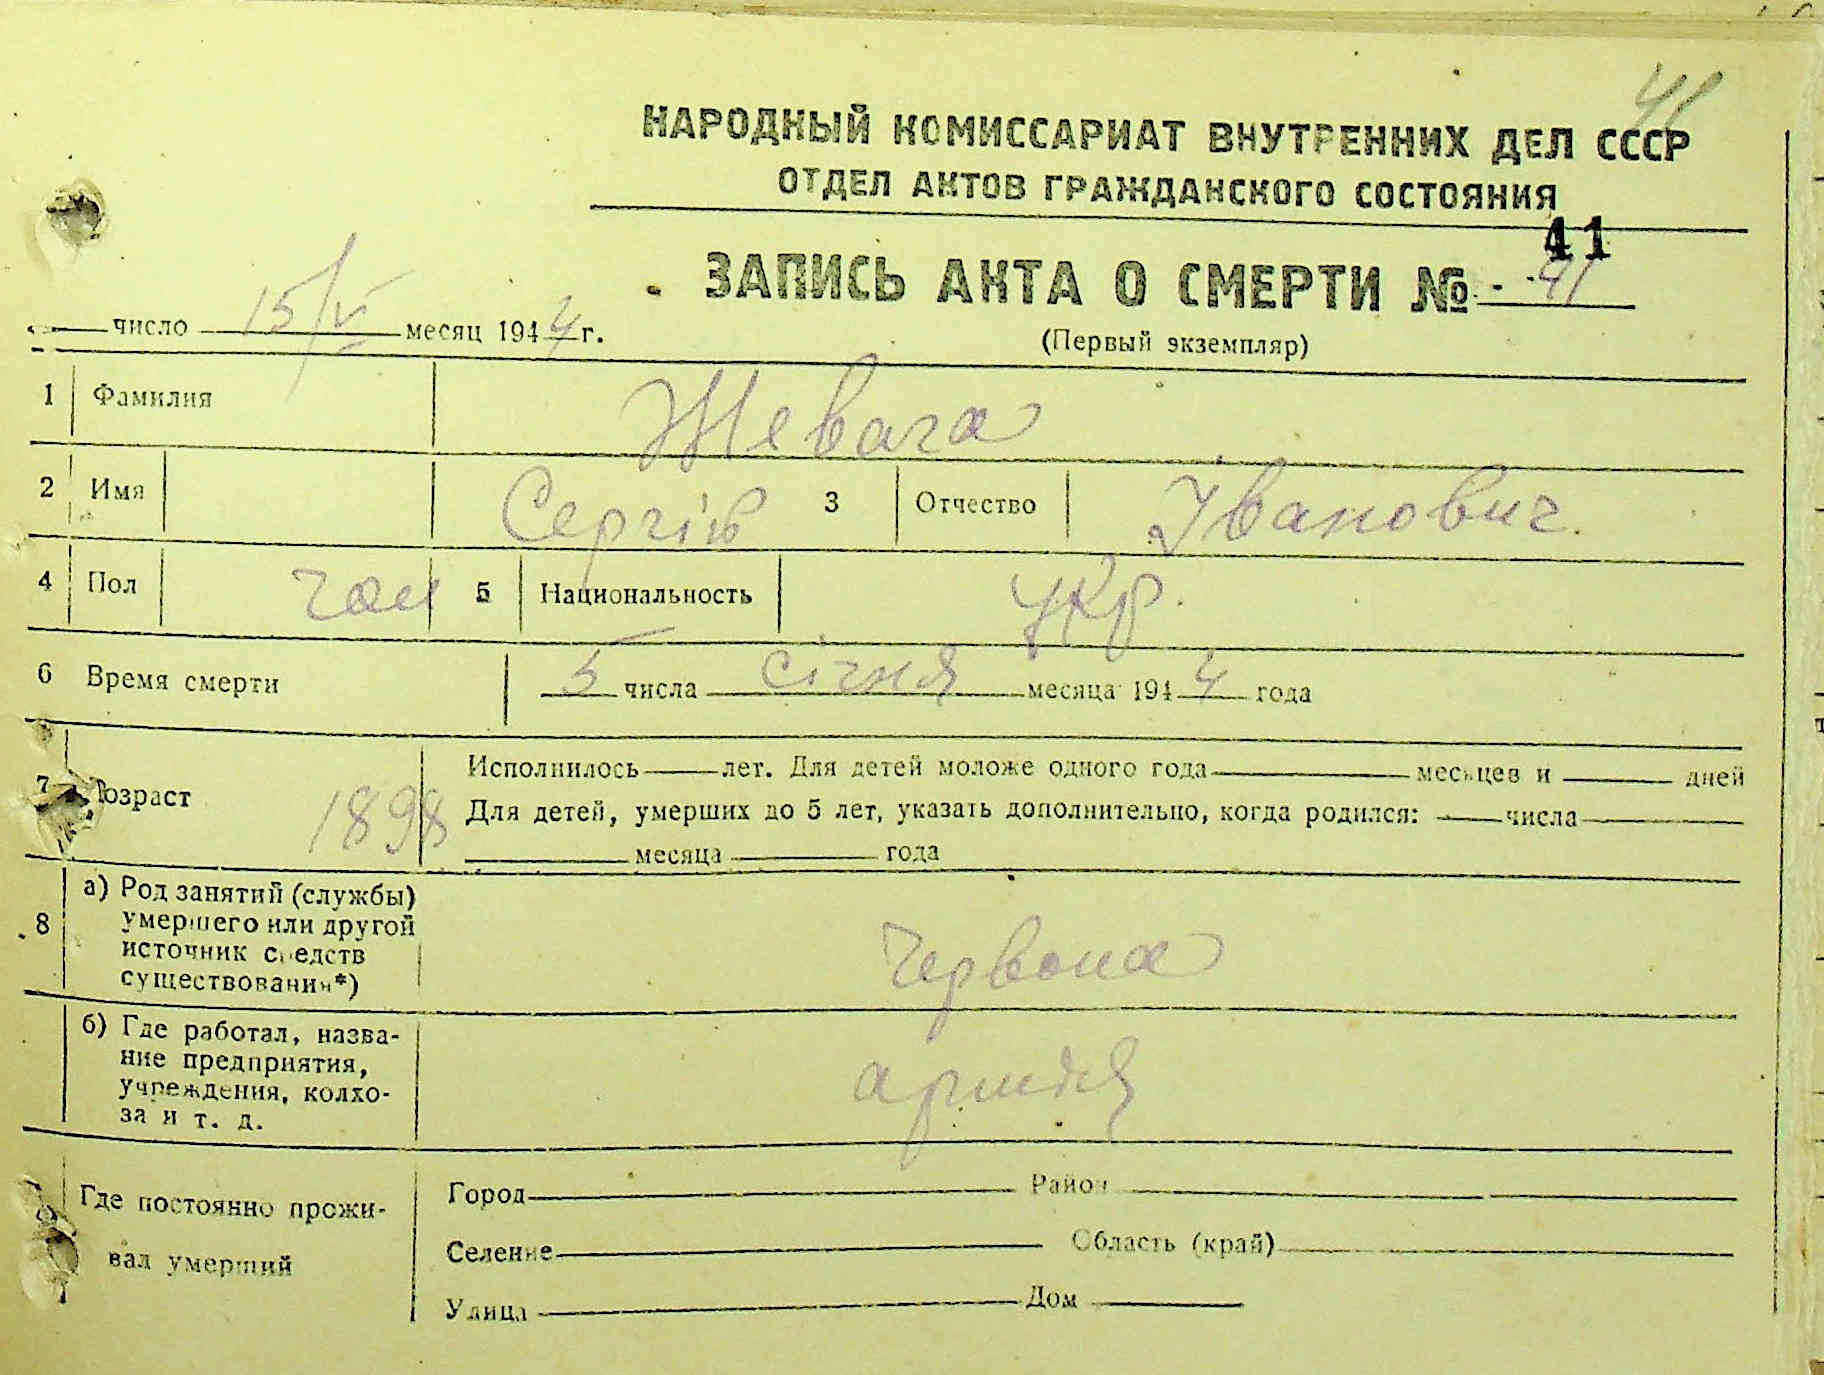 41
НАРОДНЫЙ КОМИССАРИАТ ВНУТРЕННИХ ДЕЛ СССР
ОТДЕЛ АКТОВ ГРАЖДАНСКОГО СОСТОЯНИЯ
41
ЗАПИСЬ АКТА О СМЕРТИ № 41
число 15/VI месяц 1944 г.
(Первый экземпляр)
1 Фамилия Жевага
2 Имя Сергій 3 Отчество Іванович
4 Пол чол 5 Национальность укр.
6 Время смерти 5 числа січня месяца 1944 года
7 Возраст 1898 Исполнилось лет. Для детей моложе одного года месяцев и дней
Для детей, умерших до 5 лет, указать дополнительно, когда родился: числа
месяца года
8 а) Род занятий (службы)
умершего или другой
источник средств
существования*)
Червона
б) Где работал, назва-
ние предприятия,
учреждения, колхо-
за и т. д.
армія
Где постоянно прожи-
вал умерший
Город Район
Селение Область (край)
Улица Дом